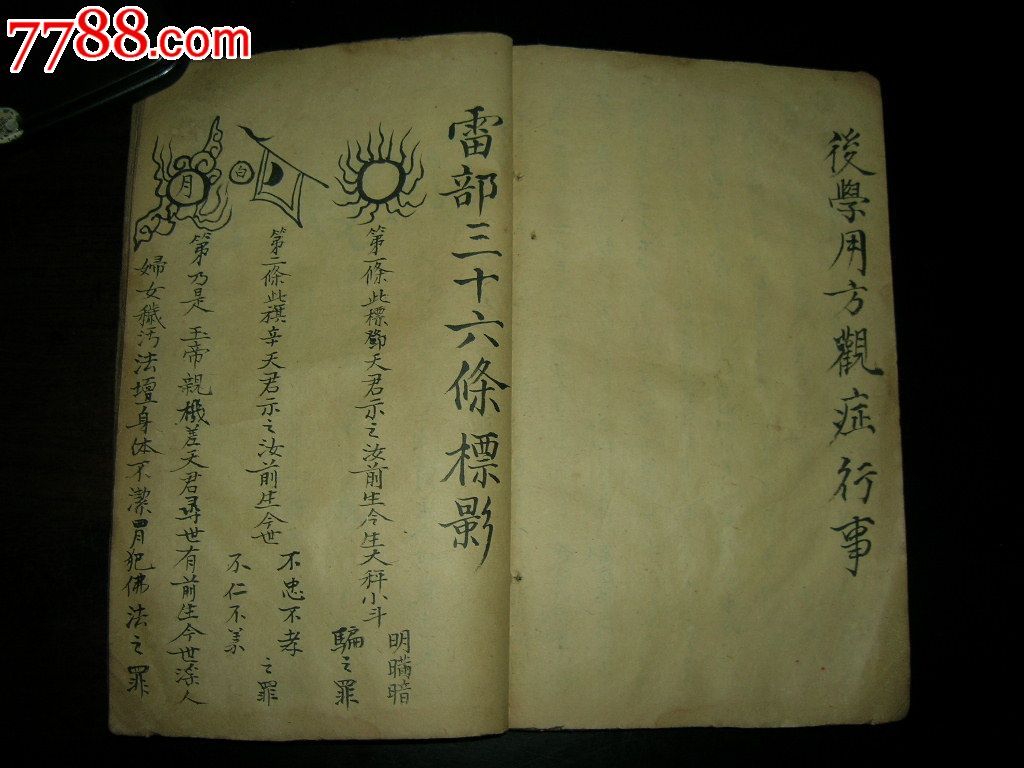 7788.com
後學用方觀症行事
雷部三十六條標影
第一條此標鄧天君示之汝前生今生大秤小斗
明瞞暗
騙之罪
白
第二條此旗辛天君示之汝前生今世
不忠不孝
不仁不義
之罪
月
第乃是玉帝親機差天君尋世有前生今世深人
婦女穢汚法壇身体不潔冐犯佛法之罪